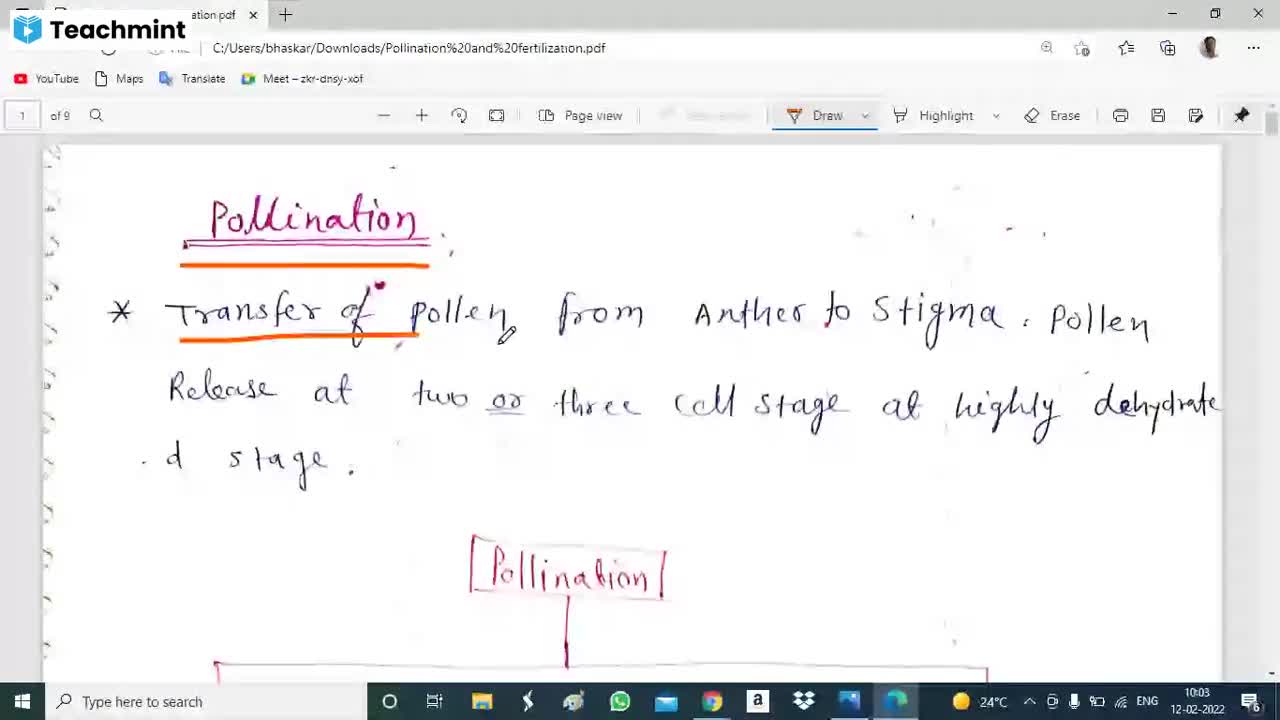 Teachmint
ation.pdf
C:/Users/bhaskar/Downloads/Pollination%20and%20fertilization.pdf
YouTube Maps Translate Meet – zkr-dnsy-xof
1 of 9 Page view Draw Highlight Erase
Pollination
* Transfer of pollen from Anther to Stigma. Pollen
Release at two or three cell stage at highly dehydrate
d stage.
Pollination
Type here to search
24°C ENG 10:03
12-02-2022
6